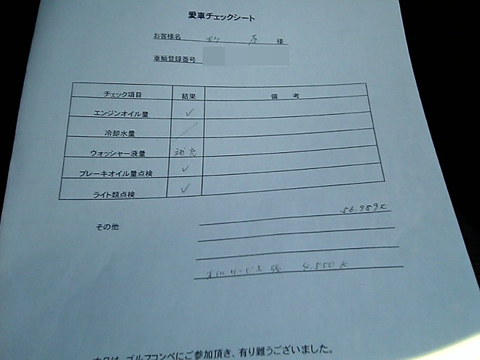 愛車チェックシート
お客様名 様
車輌登録番号
チェック項目 結果 備 考
エンジンオイル量 ✓
冷却水量 ／
ウォッシャー液量 補充
ブレーキオイル量点検 ✓
ライト類点検 ✓
その他
56.989K
4.550 K
本日は、ゴルフコンペにご参加頂き、有り難うございました。